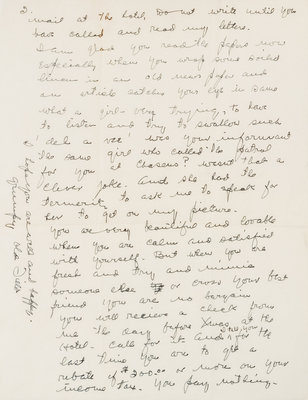 2.
mail at the hotel. Do not write until you
have called and read my letters.
I am glad you read the papers now
Especially when you wrap some soiled
linens in an old news paper and
an article catches your eye in same
what a girl - very trying, to have
to listen and try to swallow such
was your informant
the same girl who called the patrol
for you at Chasens? wasn't that a
clever joke. And she had the
temerity to ask me to speak for
her to get on my picture.
You are very beautiful and lovable
when you are calm and satisfied
with yourself - But when you are
fresh and try and mimic
someone else or cross your best
friend you are no bargain
you will receive a check from
me the day before Xmas at the
Hotel - Call for it and for the
last time you are to get a
rebate of $200.00 or more on your
income tax. You pay nothing -
I hope you are well and happy.